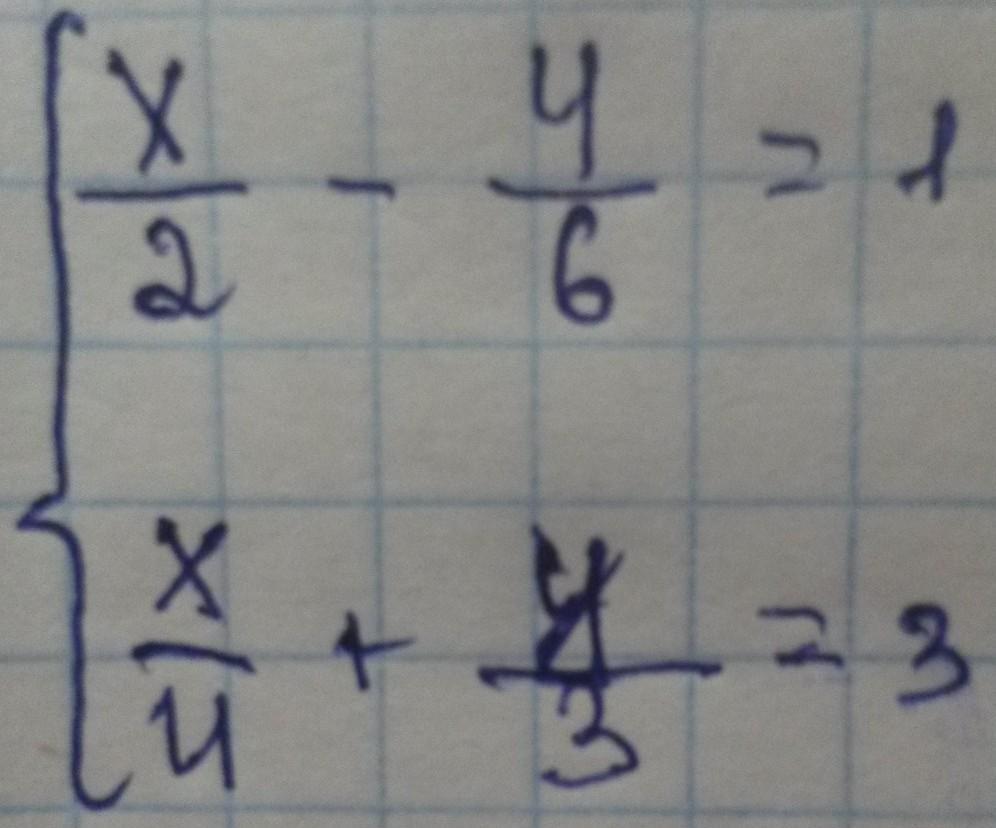 x/2 - y/6 = 1
x/4 + y/3 = 3